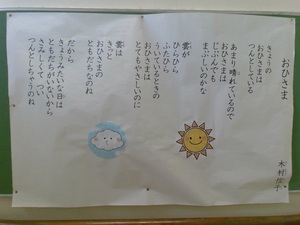 おひさま
木村信子
きょうの
おひさまは
つんとしている
あまり晴れているので
おひさまは
じぶんでも
まぶしいのかな
雲が
ひらひら
ふたひら
ういているときの
おひさまは
とてもやさしいのに
雲は
きっと
おひさまの
ともだちなのね
だから
きょうみたいな日は
ともだちがいないから
さみしくて つい
つんとしちゃうのね